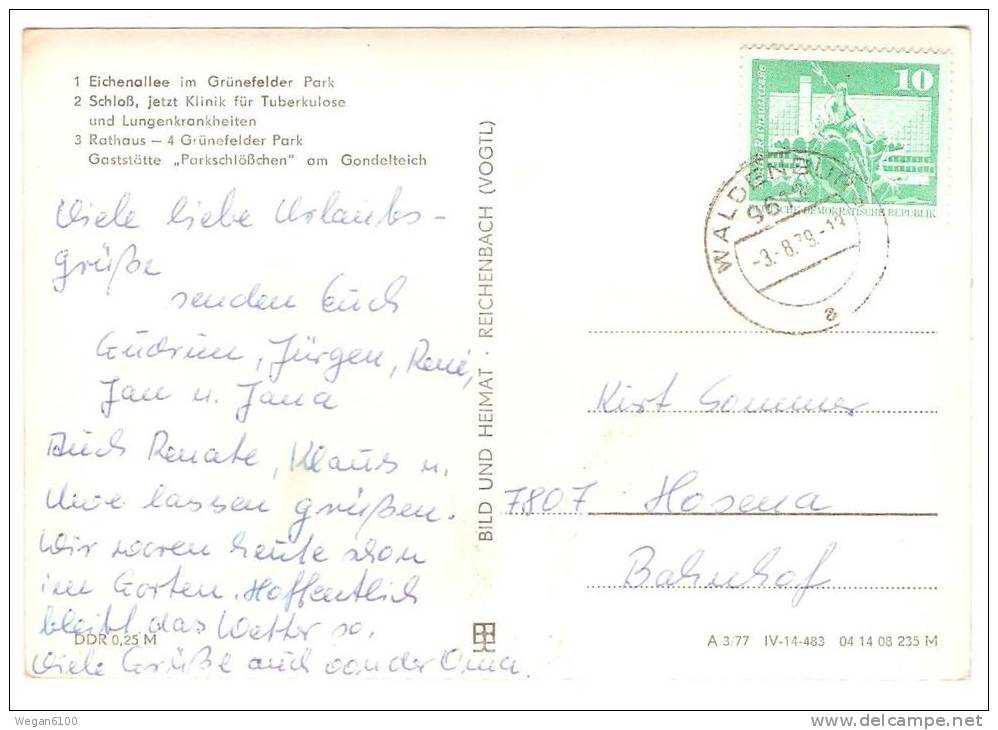 1 Eichenallee im Grünefelder Park
2 Schloß, jetzt Klinik für Tuberkulose
und Lungenkrankheiten
3 Rathaus – 4 Grünefelder Park
Gaststätte „Parkschlößchen" am Gondelteich
Viele liebe Urlaubs-
grüße
senden Euch
Gudrun, Jürgen, René,
Jan u. Jana
Auch Renate, Klaus u.
Uwe lassen grüßen.
Wir waren heute schon
im Garten. Hoffentlich
bleibt das Wetter so.
Viele Grüße auch von der Oma.
DDR 0,25 M
BILD UND HEIMAT · REICHENBACH (VOGTL)
10
DEMOKRATISCHE REPUBLIK
WALDENBURG
9612
-3.-8.79.-
a
Kurt Sommer
7807 Hosena
Bahnhof
A 3/77 IV-14-483 04 14 08 235 M
Wegan6100
www.delcampe.net